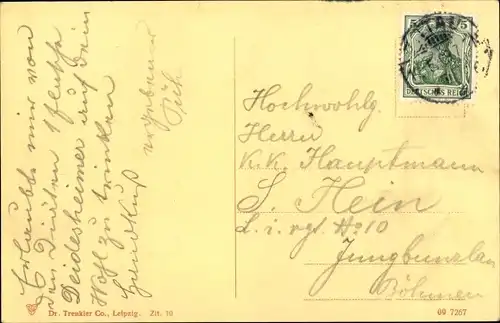 Erlaubte mir von
den Diäten 1 Flasche
Deidesheimer auf dein
Wohl zu trinken
Handkuß
ergebener
5 5
DEUTSCHES REICH
Hochwohlg.
Herrn
K. K. Hauptmann
S. Hein
L. i. rgt. No 10
Jungbunzlau
Böhmen
Dr. Trenkler Co., Leipzig. Zit. 10
09 7267